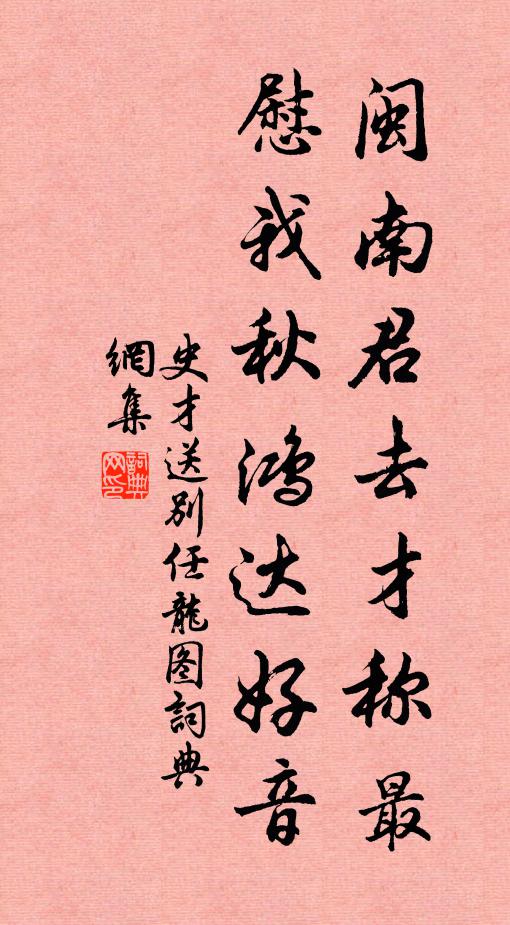 闽南君去才称最
慰我秋鸿达好音
史才送别任龍图詞典
網集
詞典网印